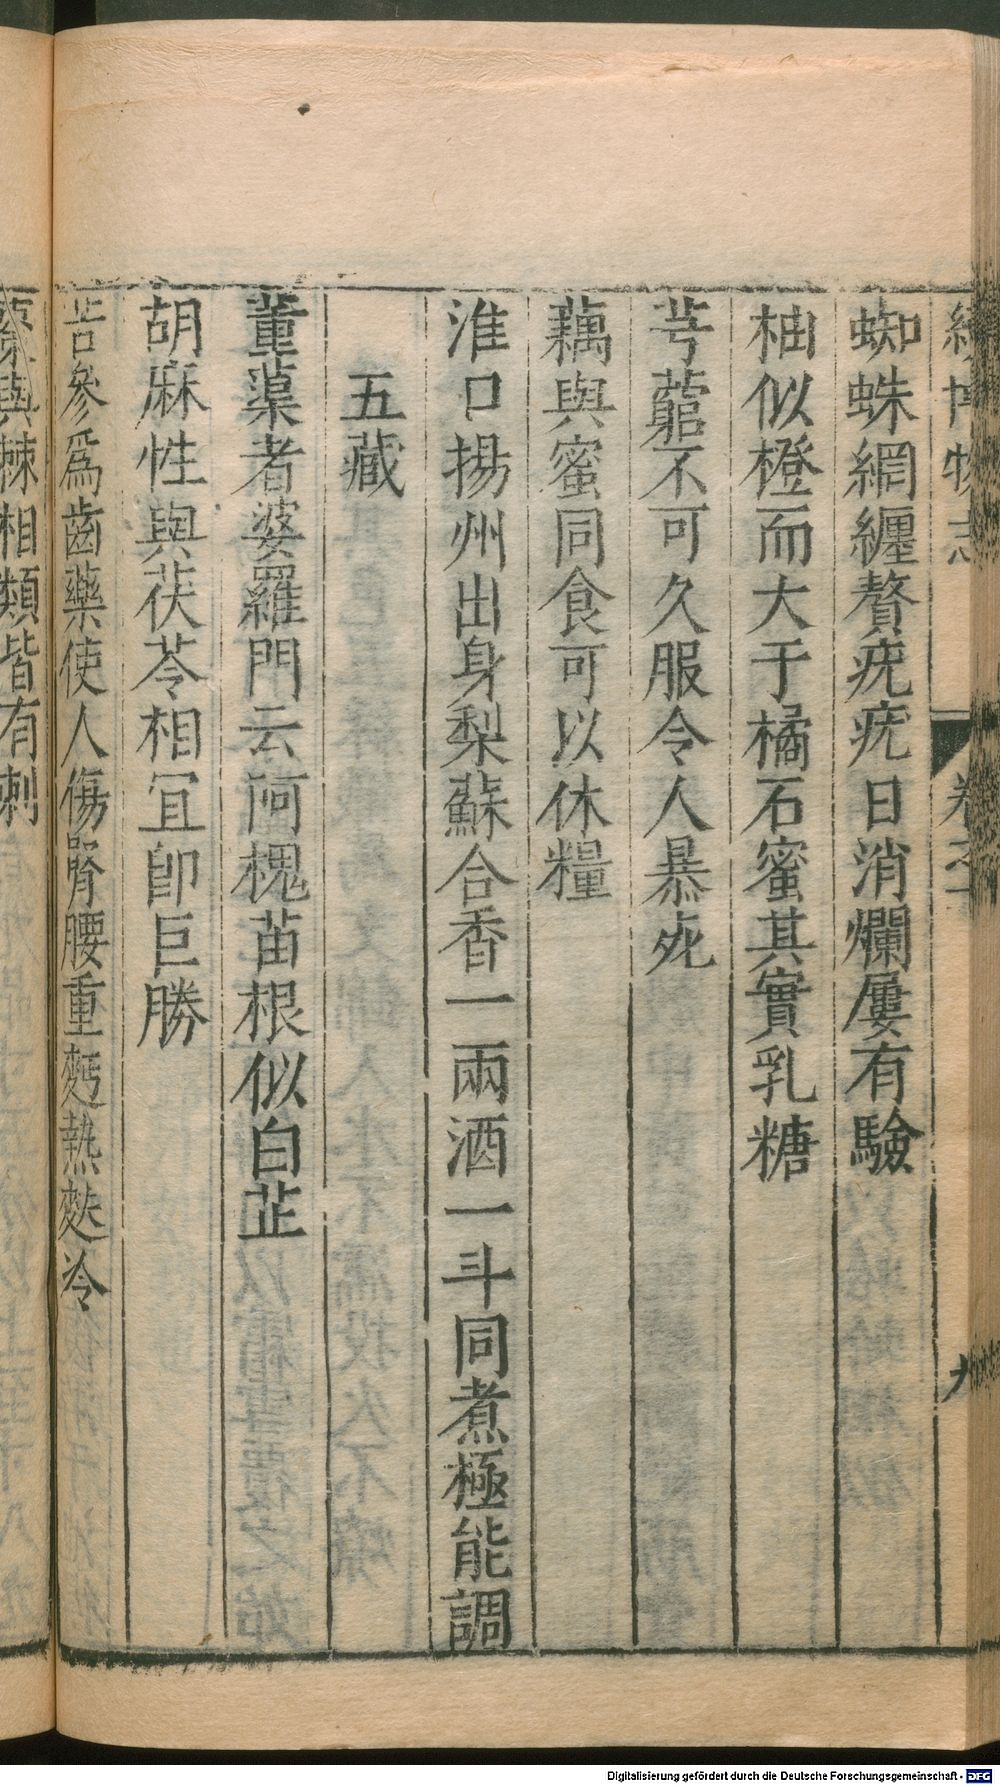 續博物志 卷之 九
蜘蛛網纏贅疣疣日消爛屢有驗
柚似橙而大于橘石蜜其實乳糖
芎藭不可久服令人暴死
藕與蜜同食可以休糧
淮口揚州出身梨蘇合香一兩酒一斗同煮極能調
五藏
董蕖者婆羅門云阿槐苗根似白芷
胡麻性與茯苓相宜卽巨勝
苦參爲齒藥使人傷腎腰重麪熱麩冷
棗與棘相類皆有刺
Digitalisierung gefördert durch die Deutsche Forschungsgemeinschaft - DFG